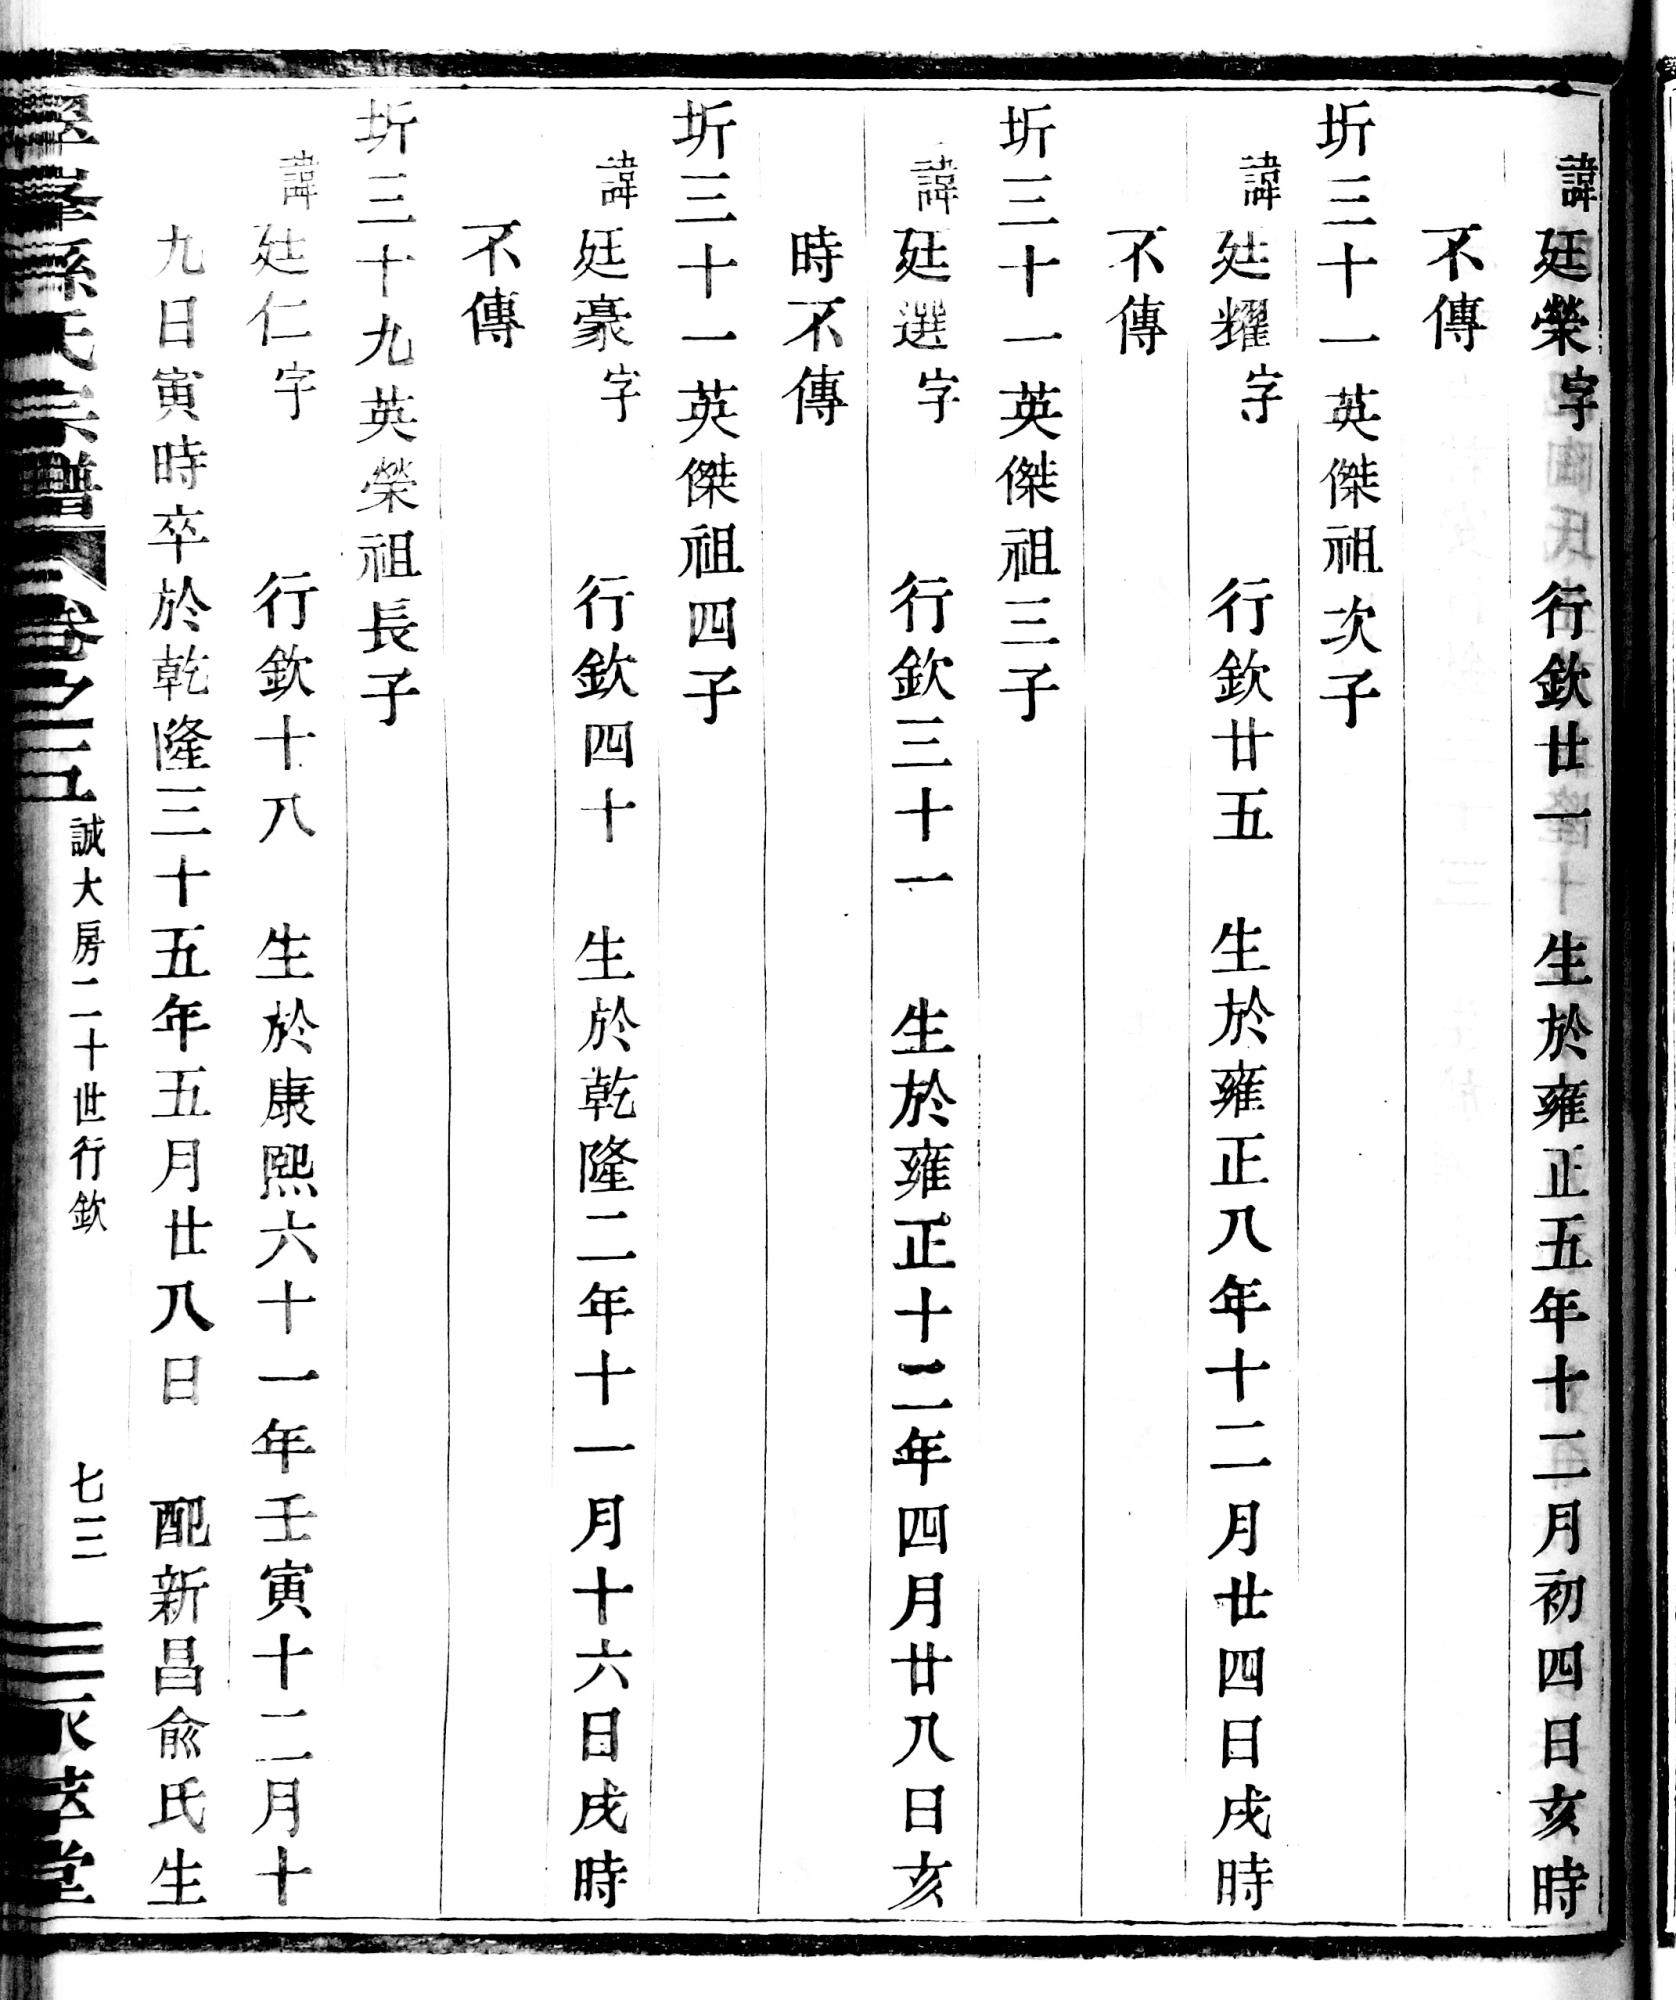 諱廷榮字　行欽廿一　生於雍正五年十二月初四日亥時
不傳
圻三十一英傑祖次子
諱廷耀字　行欽廿五　生於雍正八年十二月廿四日戌時
不傳
圻三十一英傑祖三子
諱廷選字　行欽三十一　生於雍正十二年四月廿八日亥
時不傳
圻三十一英傑祖四子
諱廷豪字　行欽四十　生於乾隆二年十一月十六日戌時
不傳
圻三十九英榮祖長子
諱廷仁字　行欽十八　生於康熙六十一年壬寅十二月十
九日寅時卒於乾隆三十五年五月廿八日　配新昌俞氏生
孫氏宗譜　卷之三　誠大房二十世行欽　七三　堂